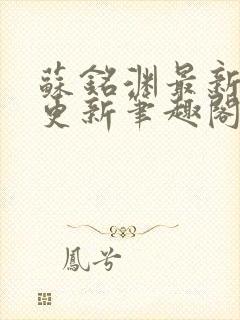 蘇銘淵最新
更新筆趣閣
鳳兮